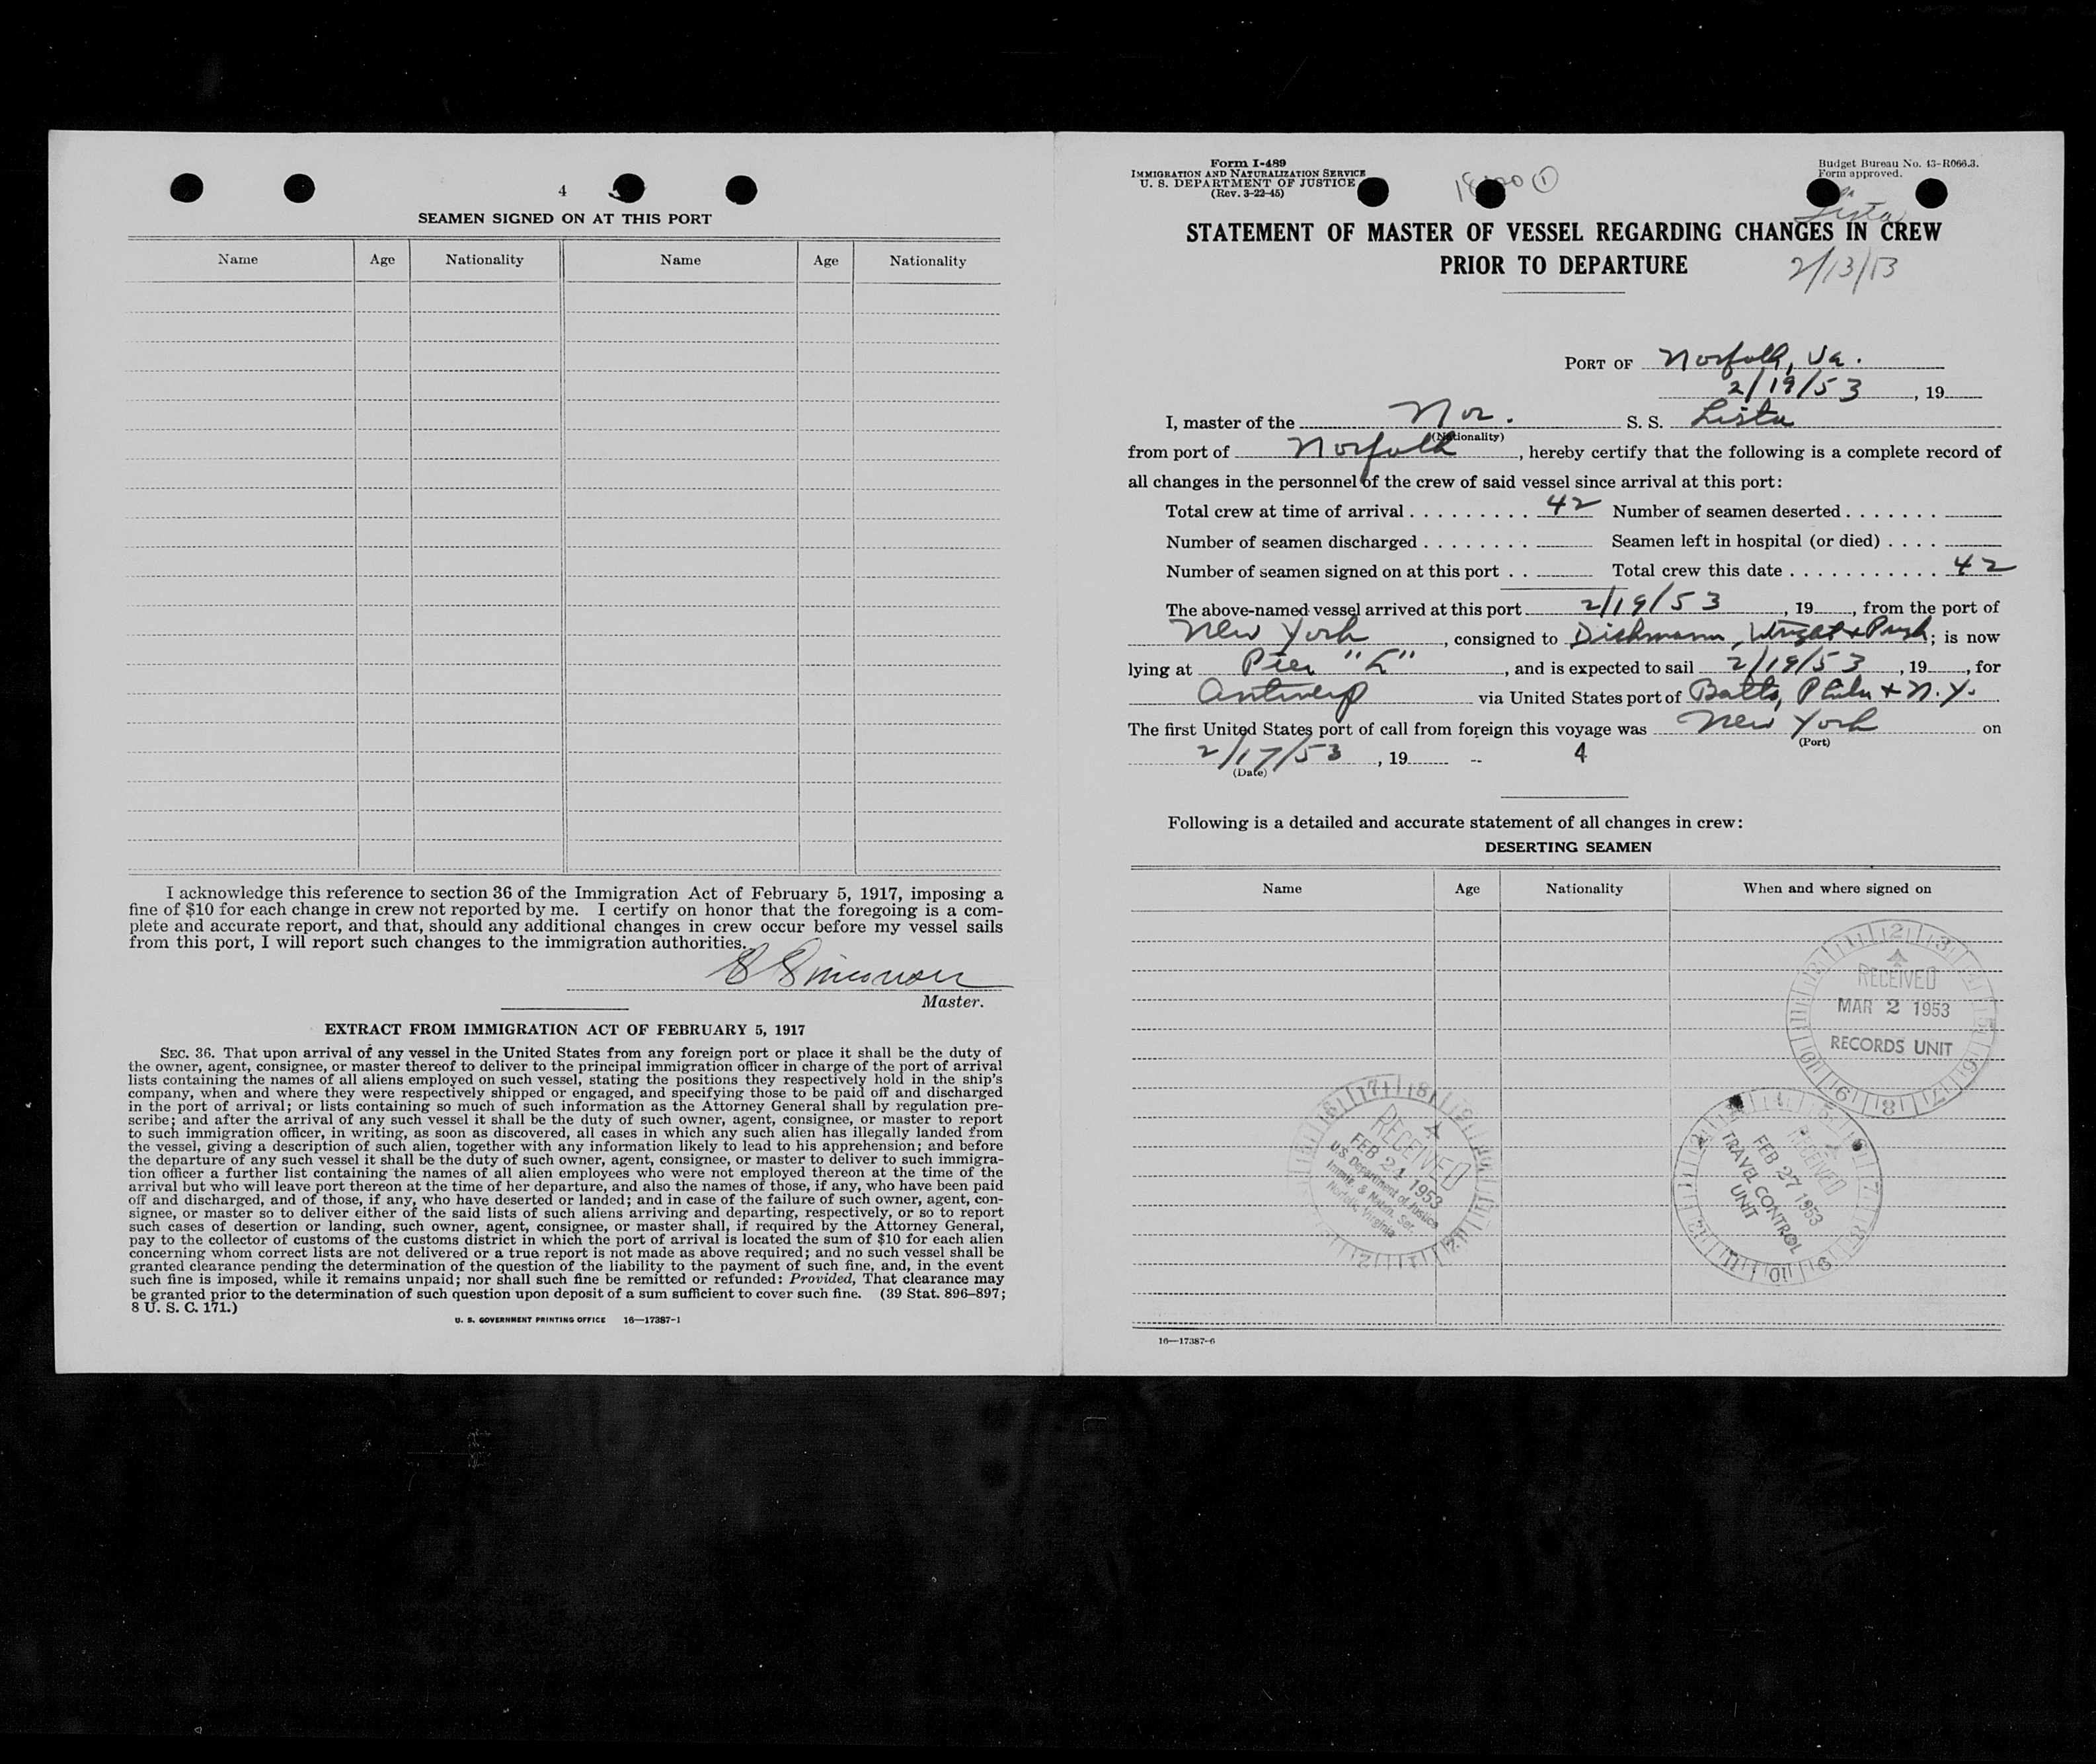 4
SEAMEN SIGNED ON AT THIS PORT
Name Age Nationality Name Age Nationality
I acknowledge this reference to section 36 of the Immigration Act of February 5, 1917, imposing a
fine of $10 for each change in crew not reported by me. I certify on honor that the foregoing is a com-
plete and accurate report, and that, should any additional changes in crew occur before my vessel sails
from this port, I will report such changes to the immigration authorities.
Master.
EXTRACT FROM IMMIGRATION ACT OF FEBRUARY 5, 1917
SEC. 36. That upon arrival of any vessel in the United States from any foreign port or place it shall be the duty of
the owner, agent, consignee, or master thereof to deliver to the principal immigration officer in charge of the port of arrival
lists containing the names of all aliens employed on such vessel, stating the positions they respectively hold in the ship's
company, when and where they were respectively shipped or engaged, and specifying those to be paid off and discharged
in the port of arrival; or lists containing so much of such information as the Attorney General shall by regulation pre-
scribe; and after the arrival of any such vessel it shall be the duty of such owner, agent, consignee, or master to report
to such immigration officer, in writing, as soon as discovered, all cases in which any such alien has illegally landed from
the vessel, giving a description of such alien, together with any information likely to lead to his apprehension; and before
the departure of any such vessel it shall be the duty of such owner, agent, consignee, or master to deliver to such immigra-
tion officer a further list containing the names of all alien employees who were not employed thereon at the time of the
arrival but who will leave port thereon at the time of her departure, and also the names of those, if any, who have been paid
off and discharged, and of those, if any, who have deserted or landed; and in case of the failure of such owner, agent, con-
signee, or master so to deliver either of the said lists of such aliens arriving and departing, respectively, or so to report
such cases of desertion or landing, such owner, agent, consignee, or master shall, if required by the Attorney General,
pay to the collector of customs of the customs district in which the port of arrival is located the sum of $10 for each alien
concerning whom correct lists are not delivered or a true report is not made as above required; and no such vessel shall be
granted clearance pending the determination of the question of the liability to the payment of such fine, and, in the event
such fine is imposed, while it remains unpaid; nor shall such fine be remitted or refunded: Provided, That clearance may
be granted prior to the determination of such question upon deposit of a sum sufficient to cover such fine. (39 Stat. 896–897;
8 U. S. C. 171.)
U. S. GOVERNMENT PRINTING OFFICE 16—17387-1
Form I-489
IMMIGRATION AND NATURALIZATION SERVICE
U. S. DEPARTMENT OF JUSTICE
(Rev. 3-22-45)
Budget Bureau No. 43-R066.3.
Form approved.
Lista
STATEMENT OF MASTER OF VESSEL REGARDING CHANGES IN CREW
PRIOR TO DEPARTURE
2/13/53
PORT OF Norfolk, Va.
2/19/53, 19
I, master of the Nor. S. S. Lista
(Nationality)
from port of Norfolk, hereby certify that the following is a complete record of
all changes in the personnel of the crew of said vessel since arrival at this port:
Total crew at time of arrival . . . . . . . . . 42 Number of seamen deserted . . . . . . .
Number of seamen discharged . . . . . . . . Seamen left in hospital (or died) . . . .
Number of seamen signed on at this port . . Total crew this date . . . . . . . . . . . 42
The above-named vessel arrived at this port 2/19/53, 19, from the port of
New York, consigned to Dichmann, Wright & Pugh; is now
lying at Pier "L", and is expected to sail 2/19/53, 19, for
Antwerp via United States port of Balto, Phila + N.Y.
The first United States port of call from foreign this voyage was New York on
(Port)
2/17/53, 19 -- 4
(Date)
Following is a detailed and accurate statement of all changes in crew:
DESERTING SEAMEN
Name Age Nationality When and where signed on
RECEIVED
MAR 2 1953
RECORDS UNIT
RECEIVED
FEB 24 1953
U.S. Department of Justice
Immig. & Natzn. Ser.
Norfolk, Virginia
RECEIVED
FEB 27 1953
TRAVEL CONTROL
UNIT
16—17387-6